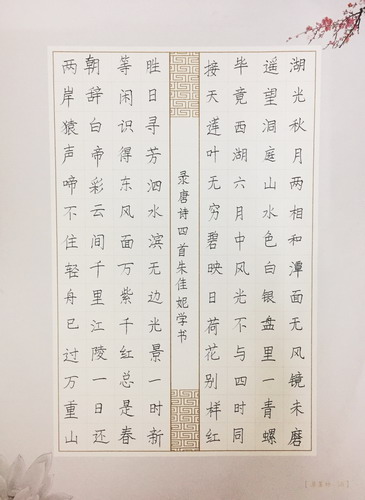 湖光秋月两相和潭面无风镜未磨
遥望洞庭山水色白银盘里一青螺
毕竟西湖六月中风光不与四时同
接天莲叶无穷碧映日荷花别样红
录唐诗四首朱佳妮学书
胜日寻芳泗水滨无边光景一时新
等闲识得东风面万紫千红总是春
朝辞白帝彩云间千里江陵一日还
两岸猿声啼不住轻舟已过万重山